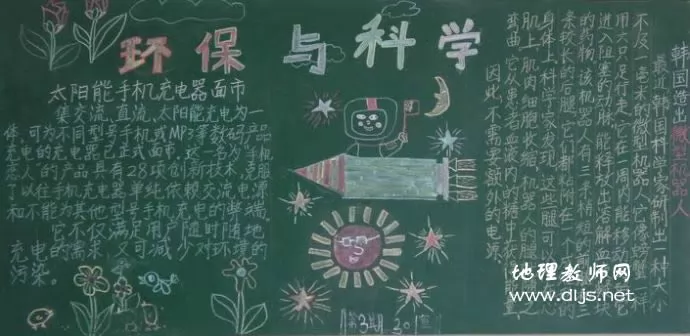 环保与科学
太阳能手机充电器面市
集交流、直流、太阳能充电为一
体,可为不同型号手机或MP3等数码产品
充电的充电器已正式面市。这一名为"手机
恋人"的产品具有28项创新技术,克服
了以往手机充电器单纯依赖交流电源
和不能为其他型号手机充电的弊端。
它不仅满足用户随时随地
充电的需求,又可减少对环境的
污染。
韩国造出微型机器人
最近韩国科学家研制出一种大小
不及一毫米的微型机器人,它像螃蟹一样
用六只足行走,可在一周内能移动
进入阻塞的动脉,能释放出溶解血栓块
的药物,该机器人有三条稍短的
条较长的后腿,它们都粘附在一个
身体上,科学家发现,这些腿可
肌上,肌肉细胞长缩,机器人的腿
弯曲,它从患者血液内的糖中
因此,不需要额外的电源。
第3期
地理教师网
www.dljs.net